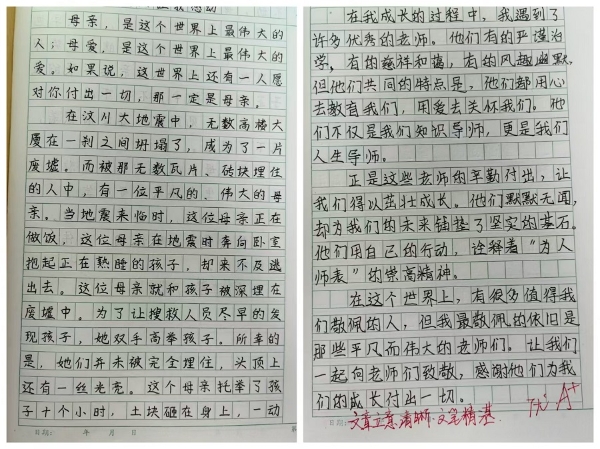 母亲，是这个世界上最伟大的
人；母爱，是这个世界上最伟大的
爱。如果说，这世界上还有一人愿
对你付出一切，那一定是母亲。
在汶川大地震中，无数高楼大
厦在一刹之间坍塌了，成为了一片
废墟。而被那无数瓦片、砖块埋住
的人中，有一位平凡的、伟大的母
亲。当地震来临时，这位母亲正在
做饭，这位母亲在地震时奔向卧室
抱起正在熟睡的孩子，却来不及逃
出去。这位母亲就和孩子被深埋在
废墟中。为了让搜救人员尽早的发
现孩子，她双手高举孩子。所幸的
是，她们并未被完全埋住，头顶上
还有一丝光亮。这个母亲托举了孩
子十个小时，土块砸在身上，一动
日期： 年 月 日
在我成长的过程中，我遇到了
许多优秀的老师。他们有的严谨治
学，有的慈祥和蔼，有的风趣幽默，
但他们共同的特点是，他们都用心
去教育我们，用爱去关怀我们。他
们不仅是我们知识导师，更是我们
人生导师。
正是这些老师的辛勤付出，让
我们得以茁壮成长。他们默默无闻，
却为我们的未来铺垫了坚实的基石。
他们用自己的行动，诠释着“为人
师表”的崇高精神。
在这个世界上，有很多值得我
们敬佩的人，但我最敬佩的依旧是
那些平凡而伟大的老师们。让我们
一起向老师们致敬，感谢他们为我
们的成长付出一切。
日期：
文章立意清晰.文笔精基 A+